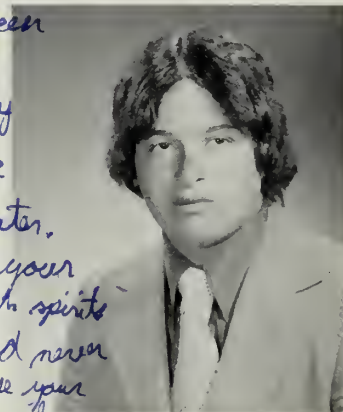 een
y
e
ter.
your
h spirits
d never
e your